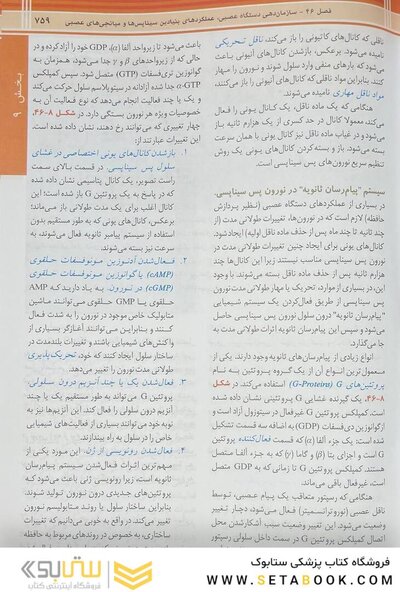 فصل ۴۶ - سازمان‌دهی دستگاه عصبی، عملکردهای بنیادین سیناپس‌ها و میانجی‌های عصبی
۷۵۹
بخش ۹
ناقلی که کانال‌های کاتیونی را باز می‌کند، ناقل تحریکی
نامیده می‌شود. برعکس، بازشدن کانال‌های آنیونی باعث
می‌شود که بارهای منفی وارد سلول شوند و نورون را مهار
کنند. بنابراین مواد ناقلی که کانال‌های آنیونی را باز می‌کنند،
مواد ناقل مهاری نامیده می‌شوند.
هنگامی که یک ماده ناقل، یک کانال یونی را فعال
می‌کند، معمولا کانال در حد کسری از یک هزارم ثانیه باز
می‌شود و در غیاب ماده ناقل نیز کانال یونی با همان سرعت
بسته می‌شود. باز و بسته کردن کانال‌های یونی یک روش
تنظیم سریع نورون‌های پس سیناپسی است.
سیستم "پیام‌رسان ثانویه" در نورون پس سیناپسی.
در بسیاری از عملکردهای دستگاه عصبی (نظیر پردازش
حافظه) لازم است که در نورون‌ها، تغییرات طولانی مدت (از
چند ثانیه تا چند ماه پس از حذف ماده ناقل اولیه) ایجادشود.
کانال‌های یونی برای ایجاد چنین تغییرات طولانی مدت در
نورون پس سیناپسی مناسب نیستند زیرا این کانال‌ها چند
هزارم ثانیه پس از حذف ماده ناقل بسته می‌شوند. با وجود
این، در بسیاری از موارد، تحریک یا مهار طولانی مدت نورون
پس سیناپسی از طریق فعال‌کردن یک سیستم شیمیایی
"پیام‌رسان ثانویه" درون سلول نورون پس سیناپسی حاصل
می‌شود و سپس این پیام‌رسان ثانویه اثرات طولانی مدت به
جا می‌گذارد.
انواع زیادی از پیام‌رسان‌های ثانویه وجود دارند. یکی از
معمول‌ترین انواع آن از یک گروه پروتئین به نام
پروتئین‌های G (G-Proteins) استفاده می‌کند. در شکل
۸-۴۶، یک گیرنده غشایی G پروتئینی نشان داده شده
است. کمپلکس پروتئین G غیرفعال در سیتوزول آزاد است و
از گوانوزین دی‌فسفات (GDP) به اضافه سه قسمت تشکیل
شده است: یک جزء آلفا (α) که قسمت فعال‌کننده پروتئین
G است و اجزای بتا (β) و گاما (γ) که به جزء آلفا چسبیده
هستند. کمپلکس پروتئین G تا زمانی که به GDP متصل
است، غیرفعال باقی می‌ماند.
هنگامی که رسپتور متعاقب یک پیام عصبی، توسط
ناقل عصبی (نوروترانسمیتر) فعال می‌شود، دچار تغییر
وضعیت می‌شود. این تغییر وضعیت سبب آشکارشدن محل
اتصال کمپلکس پروتئین G در سمت داخل سلولی رسپتور
باعث می‌شود تا زیرواحد آلفا (α)، GDP خود را آزاد کرده و در
حالی که از زیرواحدهای β و γ جدا می‌شود، همزمان به
گوانوزین تری‌فسفات (GTP) متصل شود. سپس کمپلکس
α-GTP جدا شده آزادانه در سیتوپلاسم سلول حرکت می‌کند
و یک یا چند فعالیت انجام می‌دهد که نوع فعالیت آن به
خصوصیات ویژه هر نورون بستگی دارد. در شکل ۸-۴۶،
چهار تغییری که می‌توانند رخ دهند، نشان داده شده است.
این تغییرات عبارتند از:
۱. بازشدن کانال‌های یونی اختصاصی در غشای
سلول پس سیناپسی. در قسمت بالای سمت
راست تصویر، یک کانال پتاسیمی نشان داده شده
که در پاسخ به یک پروتئین G باز شده است؛ این
کانال اغلب برای یک مدت طولانی باز می‌ماند؛
برعکس، کانال‌های یونی که به طور مستقیم بدون
استفاده از سیستم پیامبر ثانویه فعال می‌شوند، به
سرعت نیز بسته می‌شوند.
۲. فعال‌شدن آدنوزین مونوفسفات حلقوی
(cAMP) یا گوانوزین مونوفسفات حلقوی
(cGMP) در نورون. به یاد دارید که AMP
حلقوی یا GMP حلقوی می‌توانند ماشین
متابولیک خاص موجود در نورون را به شدت فعال
کنند، و بنابراین می‌توانند آغازگر بسیاری از
واکنش‌های شیمیایی باشند و تغییرات بلندمدت در
ساختار سلول ایجاد کنند که خود، تحریک‌پذیری
طولانی مدت نورون را تغییر می‌دهد.
۳. فعال‌شدن یک یا چند آنزیم درون سلولی.
پروتئین G می‌تواند به طور مستقیم یک یا چند
آنزیم درون سلولی را فعال کند. این آنزیم‌ها نیز به
نوبه خود می‌توانند بسیاری از فعالیت‌های شیمیایی
خاص را در سلول به راه بیندازند.
۴. فعال‌شدن رونویسی از ژن. این مورد یکی از
مهم‌ترین اثرات فعال‌شدن سیستم پیام‌رسان
ثانویه است، زیرا رونویسی ژنی باعث می‌شود که
پروتئین‌های جدیدی درون نورون تولید شوند.
بنابراین ساختار سلول یا روند متابولیسم نورون
تغییر می‌کند. در واقع به خوبی می‌دانیم که تغییرات
ساختاری خاصی در روندهای مربوط به حافظه
فروشگاه کتاب پزشکی ستابوک
www.SETABOOK.com
ستابوک
فروشگاه اینترنتی کتاب